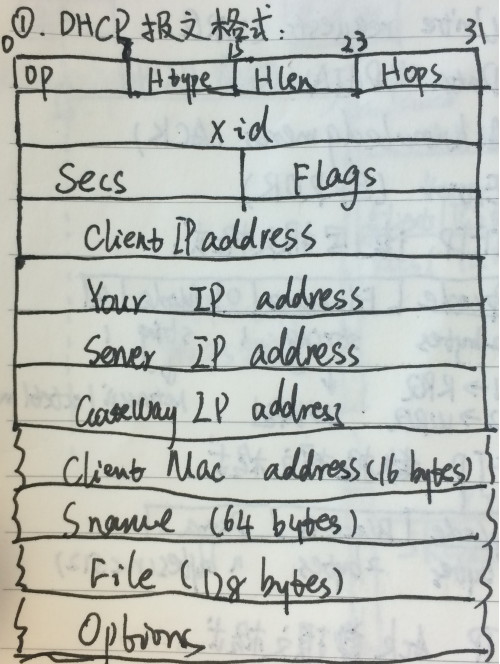 ①. DHCP 报文格式:
0 7 15 23 31
OP Htype Hlen Hops
xid
Secs Flags
Client IP address
Your IP address
Server IP address
Gateway IP address
Client Mac address (16 bytes)
Sname (64 bytes)
File (128 bytes)
Options